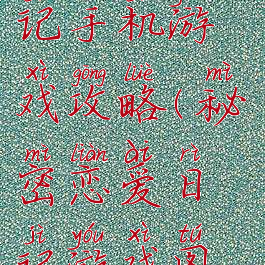 记手机游
xì gōng lüè mì
戏攻略(秘
mì liàn ài rì
密恋爱日
jì yóu xì tú
记游戏图